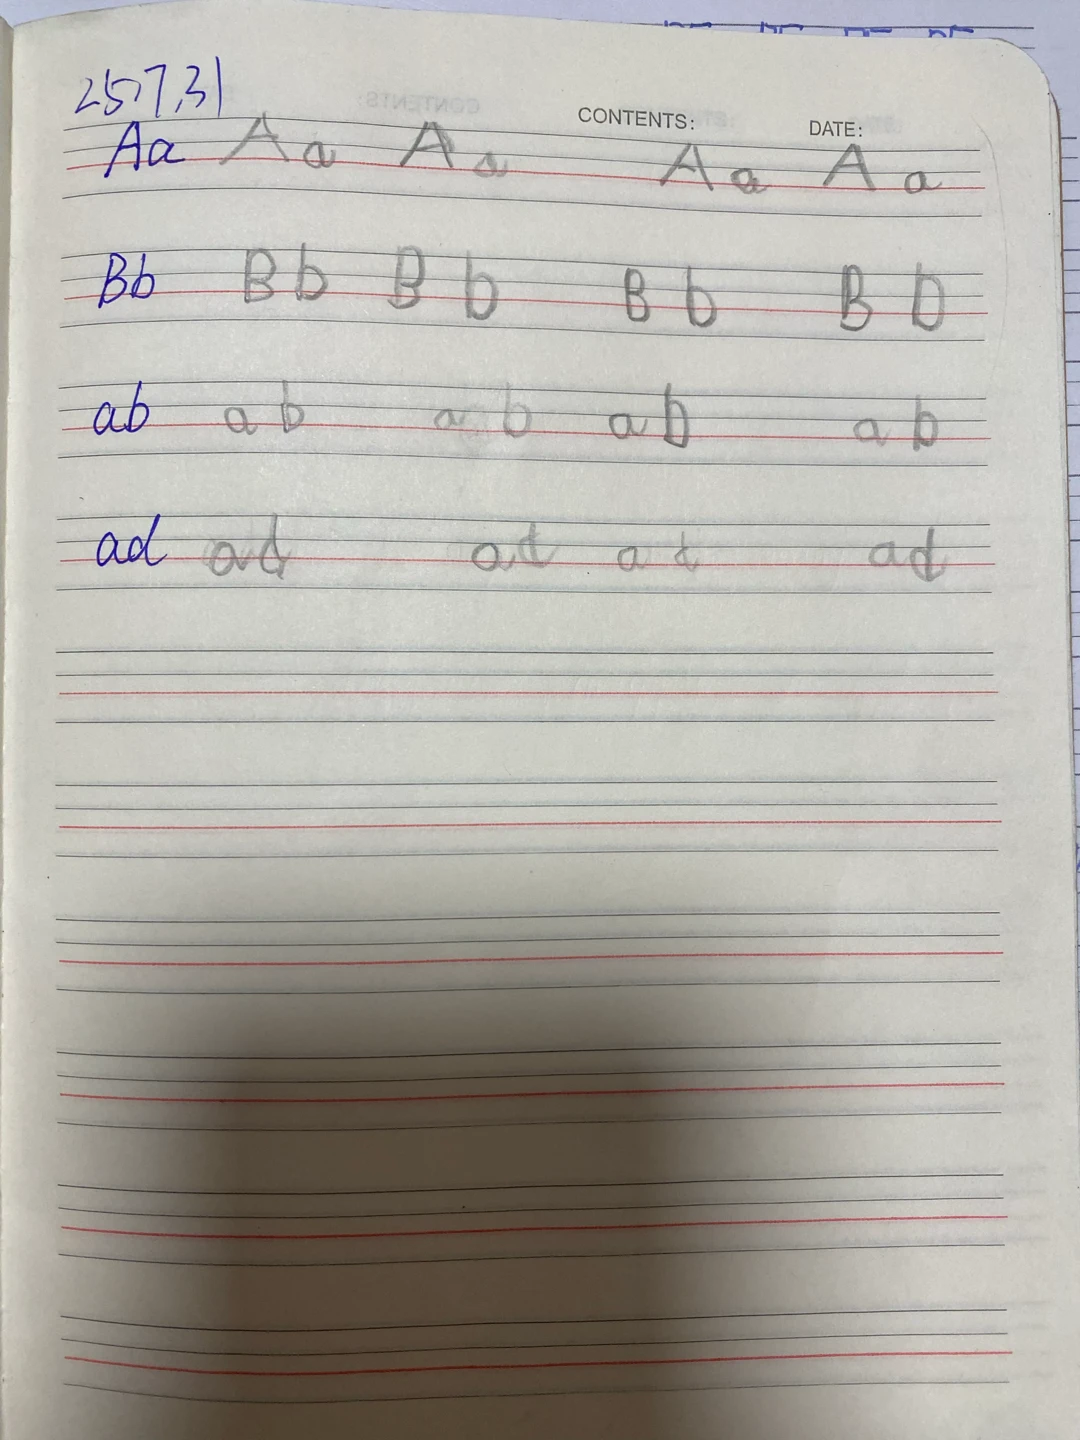 25.7.31
CONTENTS: DATE:
Aa A a A a A a A a
Bb B b B b B b B b
ab a b a b a b a b
ad ad ad a d ad